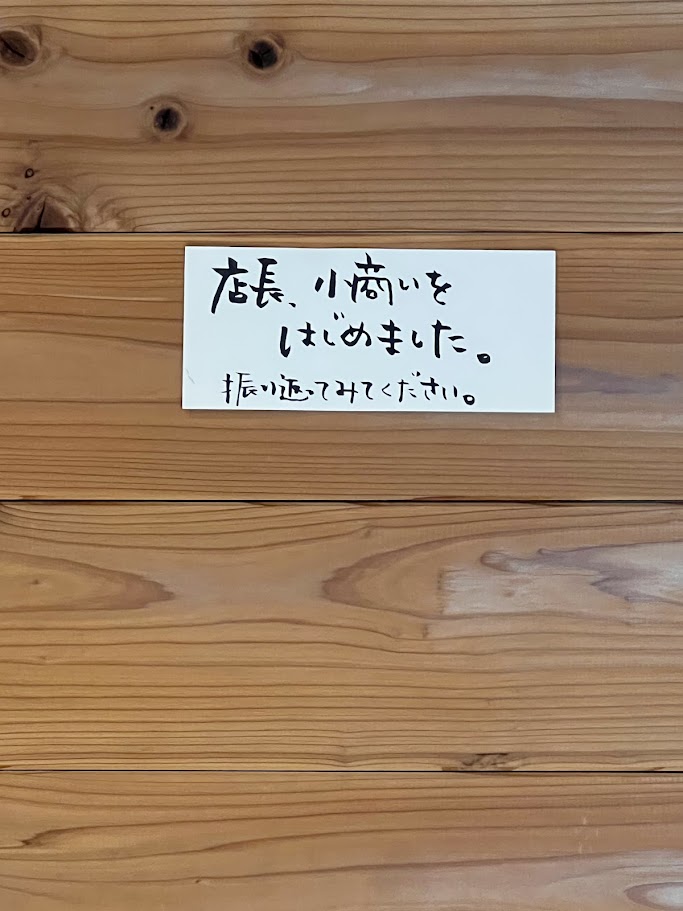 店長、小商いを
はじめました。
振り返ってみてください。